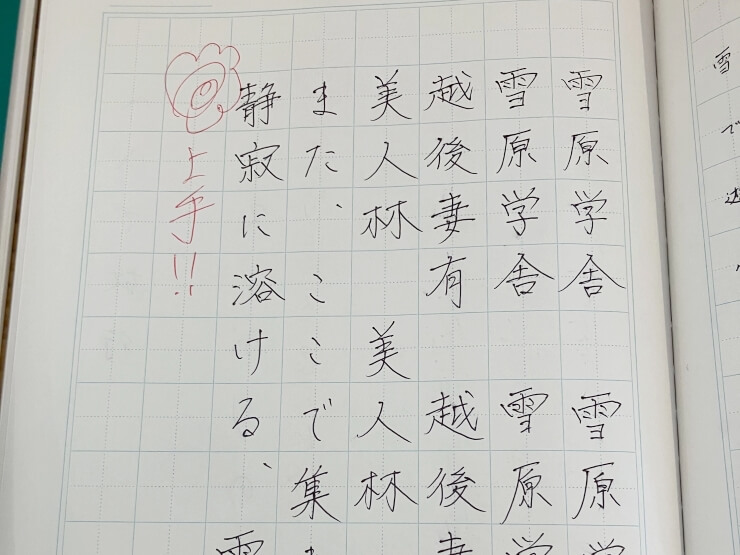 雪原学舎 雪原学
雪原学舎 雪原学
越後妻有 越後妻
美人林 美人林
また、ここで集ま
静寂に溶ける、雪
上手!!
雪
で